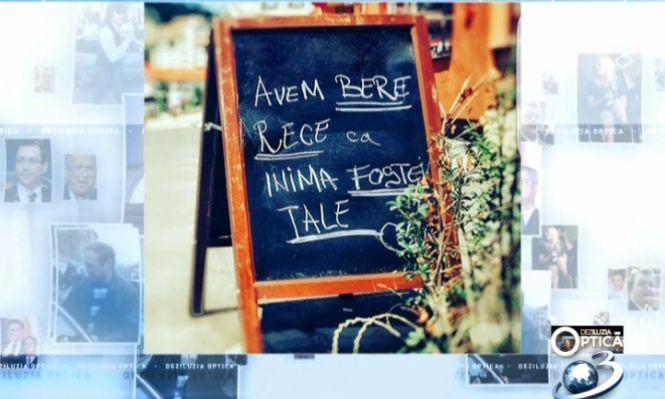 AVEM BERE
RECE ca
INIMA FOSTEI
TALE
OPTICA • DEZILUZIA OPTICA
DEZILUZIA OPTICA
DEZILUZIA
OPTICA
3
DEZILUZIA OPTICA
DEZILUZIA OPTICA